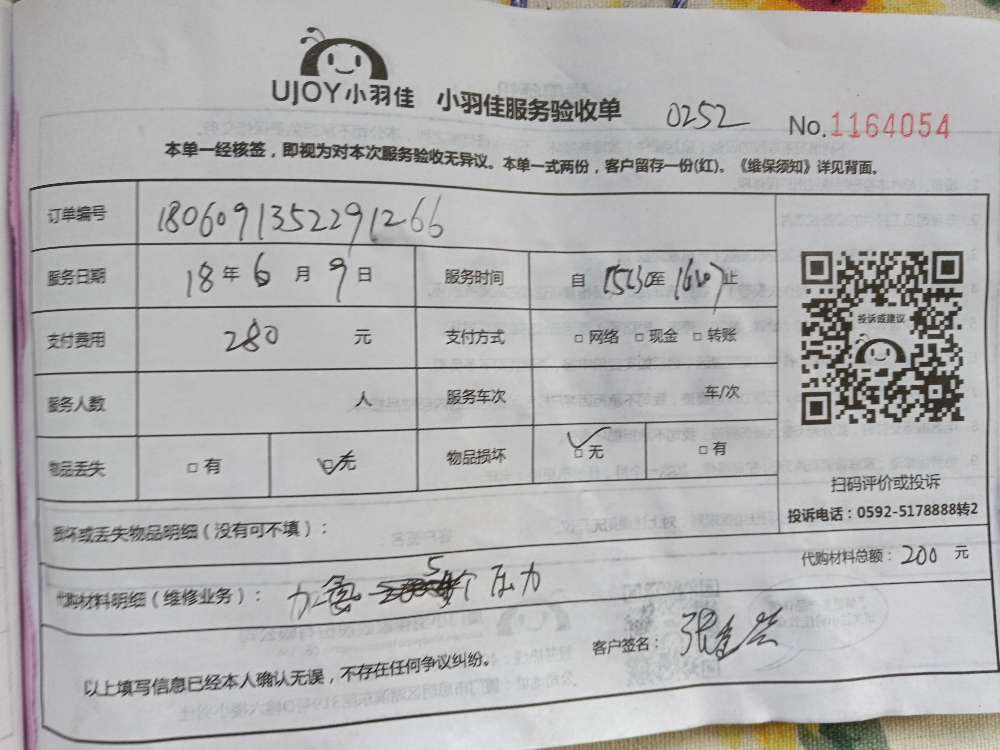 UJOY小羽佳 小羽佳服务验收单 0252 No.1164054
本单一经核签，即视为对本次服务验收无异议。本单一式两份，客户留存一份(红)。《维保须知》详见背面。
订单编号 1806091352291266
服务日期 18年6月9日 服务时间 自1530至1600止
支付费用 280 元 支付方式 □网络 □现金 □转账
服务人数 人 服务车次 车/次
物品丢失 □有 □无 物品损坏 □无 □有
投诉或建议
扫码评价或投诉
投诉电话：0592-5178888转2
损坏或丢失物品明细（没有可不填）：
代购材料总额：200 元
代购材料明细（维修业务）： 5个压力
客户签名：
以上填写信息已经本人确认无误，不存在任何争议纠纷。